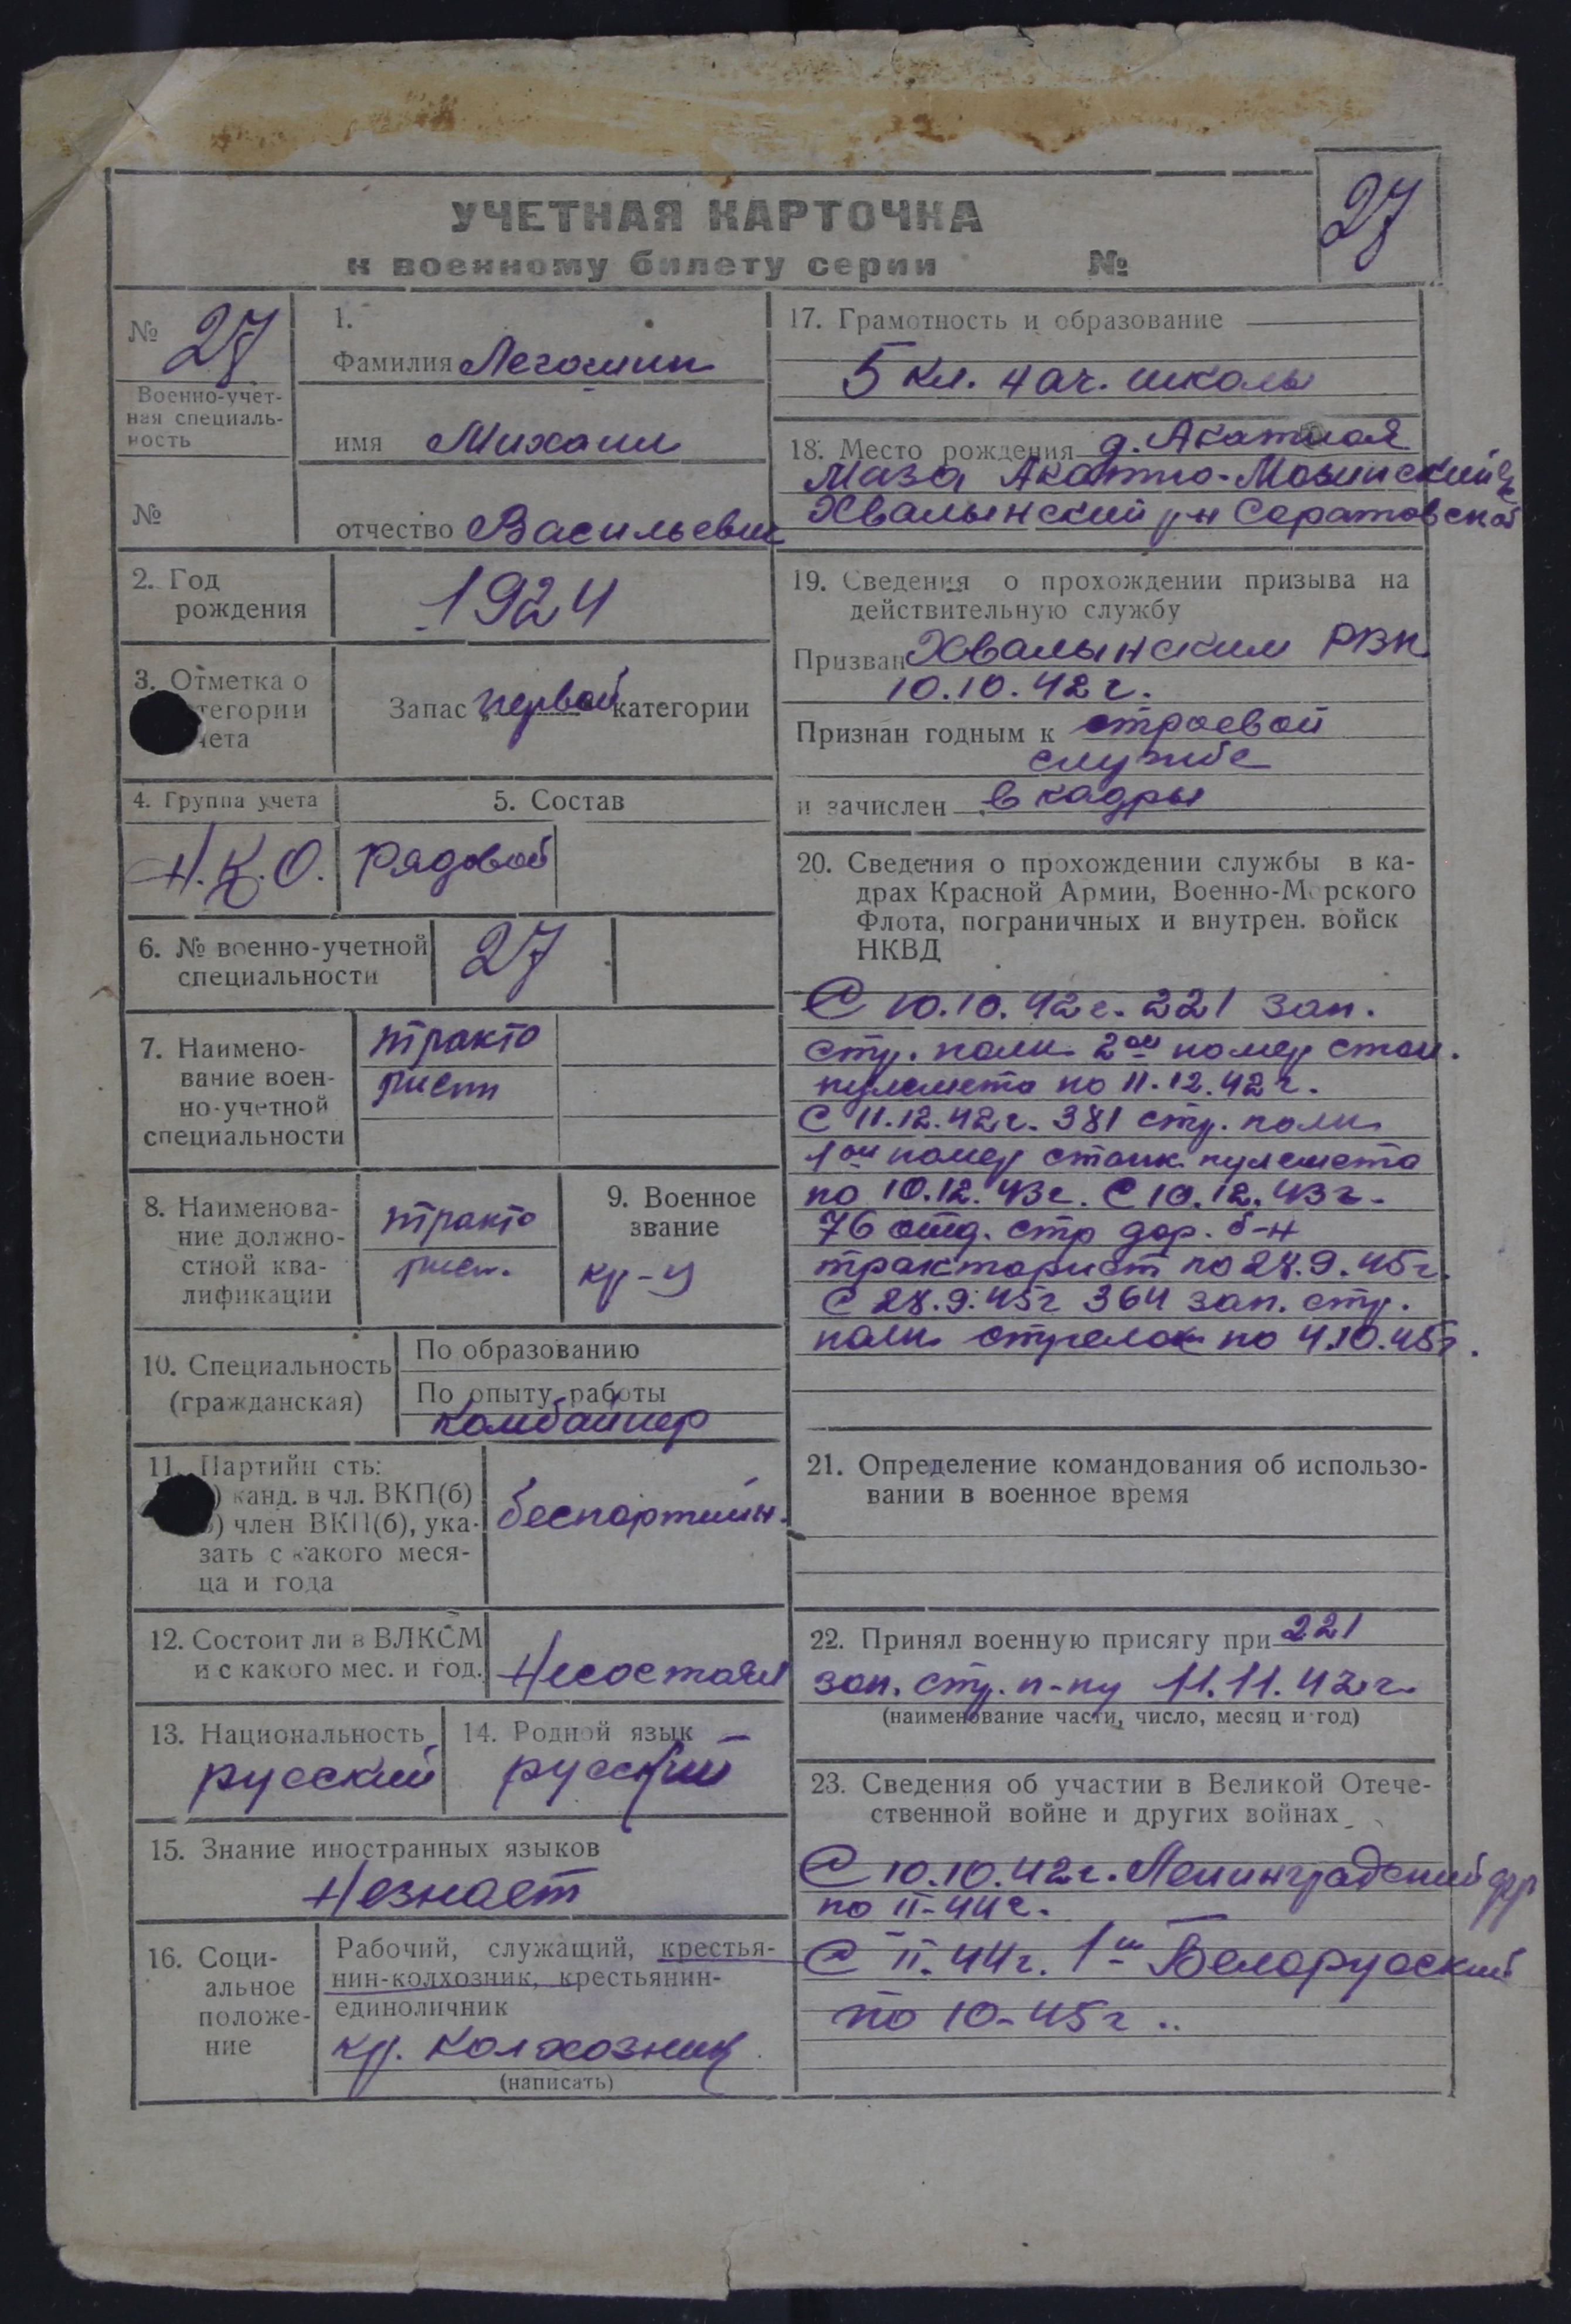 27
УЧЕТНАЯ КАРТОЧКА
к военному билету серии №
№ 27
Военно-учет-
ная специаль-
ность
№
1.
Фамилия Легошин
имя Михаил
отчество Васильевич
2. Год
рождения
1924
3. Отметка о
тегории
чета
Запас первой категории
4. Группа учета
Н.К.О.
5. Состав
Рядовой
6. № военно-учетной
специальности
27
7. Наимено-
вание воен-
но-учетной
специальности
тракто
рист
8. Наименова-
ние должно-
стной ква-
лификации
тракто
рист.
9. Военное
звание
кр-ц
10. Специальность
(гражданская)
По образованию
По опыту работы
комбайнер
11. Партийн сть:
) канд. в чл. ВКП(б)
) член ВКП(б), ука-
зать с какого меся-
ца и года
беспартийн.
12. Состоит ли в ВЛКСМ
и с какого мес. и год.
Несостоял
13. Национальность
русский
14. Родной язык
русский
15. Знание иностранных языков
Незнает
16. Соци-
альное
положе-
ние
Рабочий, служащий, крестья-
нин-колхозник, крестьянин-
единоличник
кр. колхозник
(написать)
17. Грамотность и образование
5 кл. нач. школы
18. Место рождения д. Акатная
Маза Акатно-Мазинский
Хвалынский р-н Саратовской
19. Сведения о прохождении призыва на
действительную службу
Призван Хвалынским РВК
10.10.42г.
Признан годным к строевой
службе
и зачислен в кадры
20. Сведения о прохождении службы в ка-
драх Красной Армии, Военно-Морского
Флота, пограничных и внутрен. войск
НКВД
С 10.10.42г. 221 зап.
стр. полк 2ой номер стан.
пулемета по 11.12.42г.
С 11.12.42г. 381 стр. полк
1ый номер станк. пулемета
по 10.12.43г. С 10.12.43г.
76 отд. стр дор. б-н
тракторист по 28.9.45г.
С 28.9.45г 364 зап. стр.
полк стрелок по 4.10.45г.
21. Определение командования об использо-
вании в военное время
22. Принял военную присягу при 221
зап. стр. п-ку 11.11.42г.
(наименование части, число, месяц и год)
23. Сведения об участии в Великой Отече-
ственной войне и других войнах
С 10.10.42г. Ленинградский фр
по II-44г.
С II.44г. 1й Белоруский
по 10-45г..